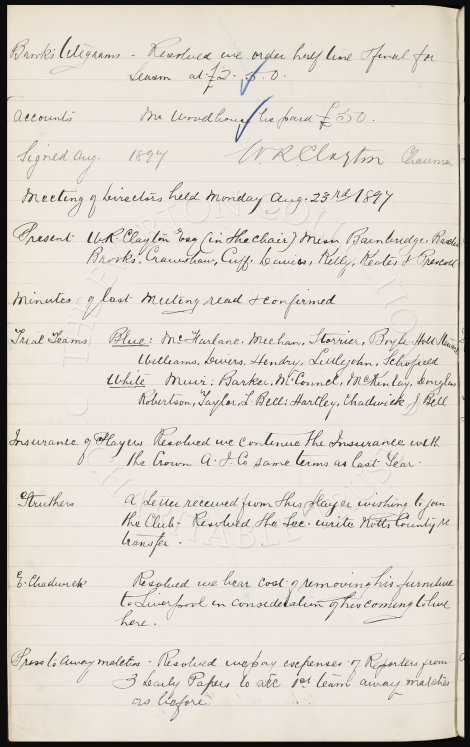 Brook's Telegrams - Resolved we order half time & final for
Season at £2. 5. 0.
Accounts Mr Woodhouse be paid £50.
Signed Aug. 1897 W.R. Clayton Chairman
Meeting of Directors held Monday Aug. 23rd 1897
Present W.R. Clayton Esq (in the chair) Messrs Bainbridge,
Brooks, Crawshaw, Cuff, Davies, Kelly, Keates & Prescott
Minutes of last Meeting read & confirmed
Trial Teams Blue: McFarlane, Meehan, Storrier, Boyle Holt
Williams, Divers, Hendry, Littlejohn, Schofield
White Muir: Barker, McConnel, McKinlay, Douglas
Robertson, Taylor, L Bell: Hartley, Chadwick J Bell
Insurance of Players Resolved we continue the Insurance with
the Crown A. I. Co same terms as last Year.
Struthers A Letter received from this player wishing to join
the Club - Resolved the Sec. write Notts County re
transfer.
E. Chadwick Resolved we bear cost of removing his furniture
to Liverpool in consideration of his coming to live
here.
Press to away matches - Resolved we pay expenses of Reporters from
3 Daily Papers to all 1st team away matches
as before.
THE EVERTON COLLECTION
CHARITABLE TRUST